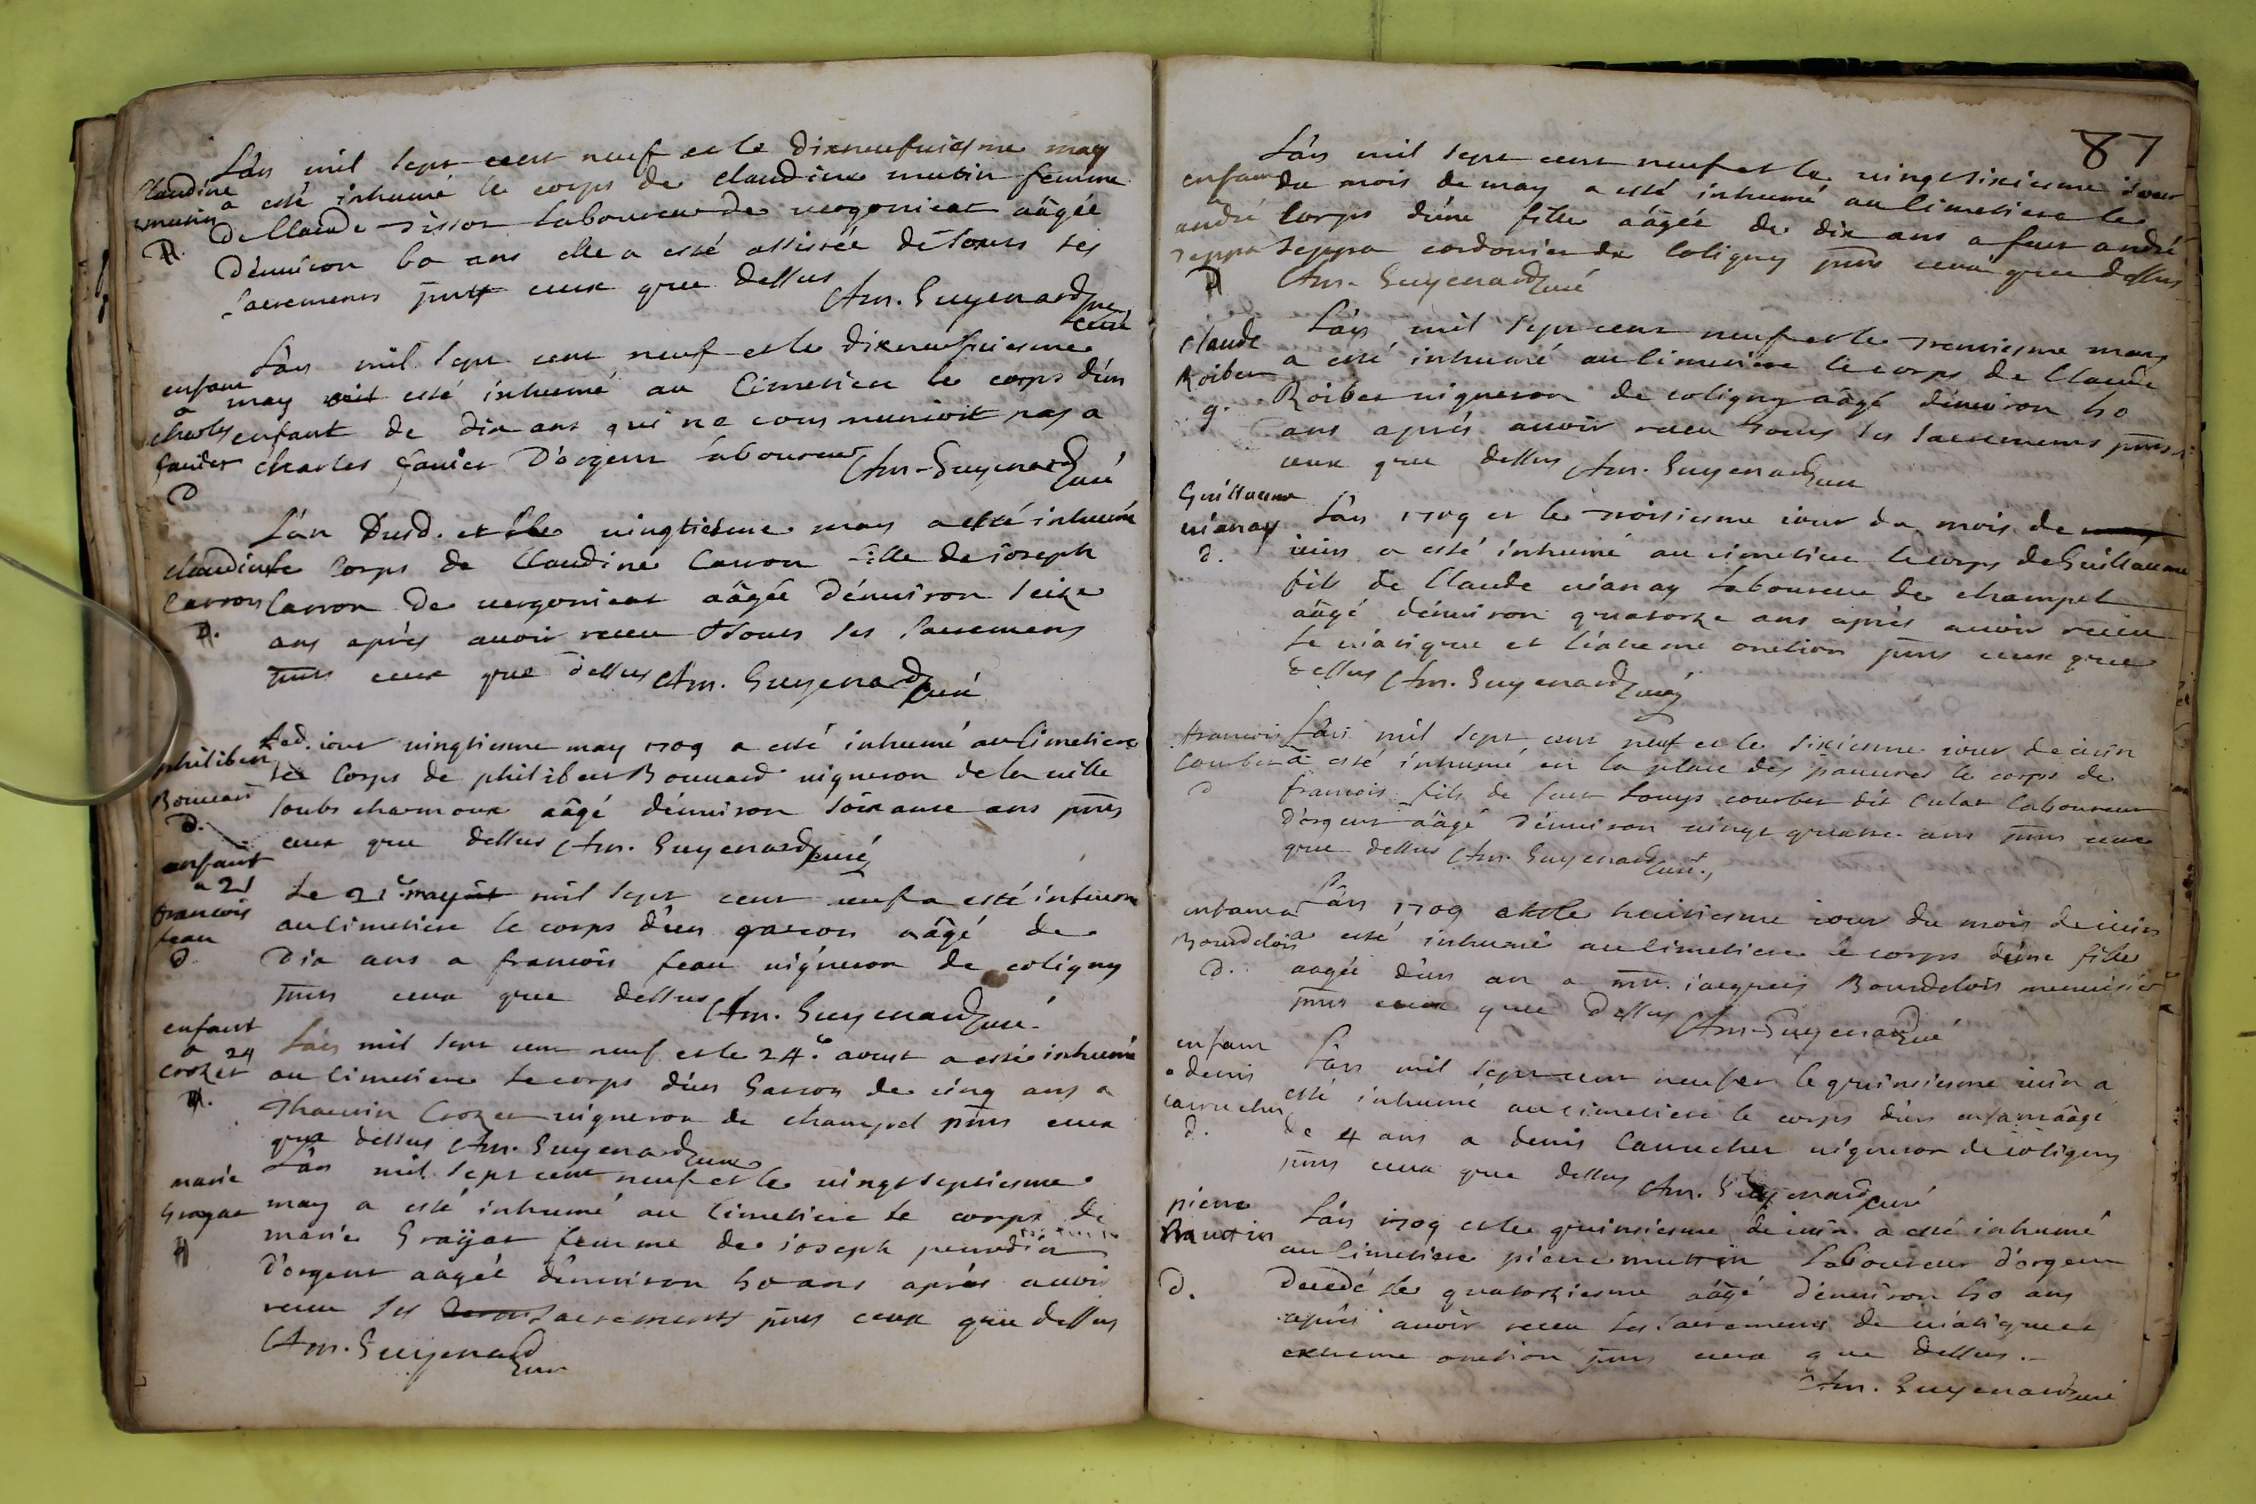 L'an mil sept cent neuf et le dixneufuiesme may
Claudine
mutin
a esté inhumé le corps de claudine mutin femme
de Claude tissot laboureur de vergonieat aâgée
d'enuiron 60 ans elle a esté assistée de tous les
sacrements pnts ceux que dessus Am. Guyenard pre
curé
L'an mil sept cent neuf et le dixneufuiesme
enfant
a
charles
fauier
d
may esté inhumé au Cimetiere le corps d'un
enfant de dix ans qui ne communioit pas a
charles fauier d'orgent laboureur Am. Guyenard curé
L'an dusd. et le vingtiesme may a esté inhumé
claudine
Carron
le corps de Claudine Carron fille de ioseph
Carron de vergonieat aâgée d'enuiron seize
ans aprés auoir receu tous les sacremens
pnts ceux que dessus Am. Guyenard curé
philibert
Bouuard
d.
Led. iour vingtiesme may 1709 a esté inhumé au Cimetiere
le Corps de philibert Bouuard uigneron de la uille
soubs charmoux aâgé d'enuiron soixante ans pnts
ceux que dessus Am. Guyenard curé
enfant
a 21
francois
feau
d
Le 21e may mil sept cent neuf a esté inhumé
au Cimetiere le corps d'un garcon aâgé de
dix ans a francois feau uigneron de coligny
pnts ceux que dessus Am. Guyenard curé
enfant
a 24
crozet
L'an mil sept cent neuf et le 24e a esté inhumé
au Cimetiere le corps d'un Garcon de cinq ans a
Crozet uigneron de champel pnts ceux
que dessus Am. Guyenard curé
marie
Grayat
L'an mil sept cent neuf et le uingt septiesme
may a esté inhumé au Cimetiere le corps de
marie Graÿat femme de ioseph
d'orgent aagée d'enuiron 50 ans aprés auoir
receu les sacrements pnts ceux que dessus
Am. Guyenard curé
87
L'an mil sept cent neuf et le uingtsixiesme iour
enfant
a
andré
seppa
du mois de may a esté inhumé au Cimetiere le
Corps d'une fille aâgée de dix ans a feu andré
seppa cordonier de Coligny pnts ceux que dessus
Am. Guyenard curé
Claude
Roibet
g.
L'an mil sept cent neuf et le trentiesme may
a esté inhumé au Cimetiere le corps de Claude
Roibet uigneron de coligny aâgé d'enuiron 50
ans aprés auoir receu tous les sacrements pnts
ceux que dessus Am. Guyenard curé
Guillaume
uianay
d.
L'an 1709 et le troisiesme iour du mois de
iuin a esté inhumé au cimetiere le corps de Guillaume
fils de Claude uianay laboureur de champel
aâgé d'enuiron quatorze ans aprés auoir receu
le uiatique et l'extreme onction pnts ceux que
dessus Am. Guyenard curé
francois
Courbet
d
L'an mil sept cent neuf et le sixiesme iour de iuin
a esté inhumé en la place des pauures le corps de
francois fils de feu Louys courbet dit Culat laboureur
d'orgent aâgé d'enuiron uingt quatre ans pnts ceux
que dessus Am. Guyenard curé
enfant a
Bourdelois
d.
L'an 1709 et le huitiesme iour du mois de iuin
a esté inhumé au Cimetiere le corps d'une fille
aagée d'un an a mre. iacques Bourdelois menuisier
pnts ceux que dessus Am. Guyenard curé
enfant
a denis
carrucher
d.
L'an mil sept cent neuf et le quinsiesme iuin a
esté inhumé au cimetiere le corps d'un enfant aâgé
de 4 ans a denis Carrucher uigneron de coligny
pnts ceux que dessus Am. Guyenard curé
pierre
mutin
d.
L'an 1709 et le quinsiesme de iuin a esté inhumé
au Cimetiere pierre muttin laboureur d'orgent
decedé le quatorziesme aâgé d'enuiron 50 ans
aprés auoir receu les sacremens de uiatique et
extreme onction pnts ceux que dessus.
Am. Guyenard curé